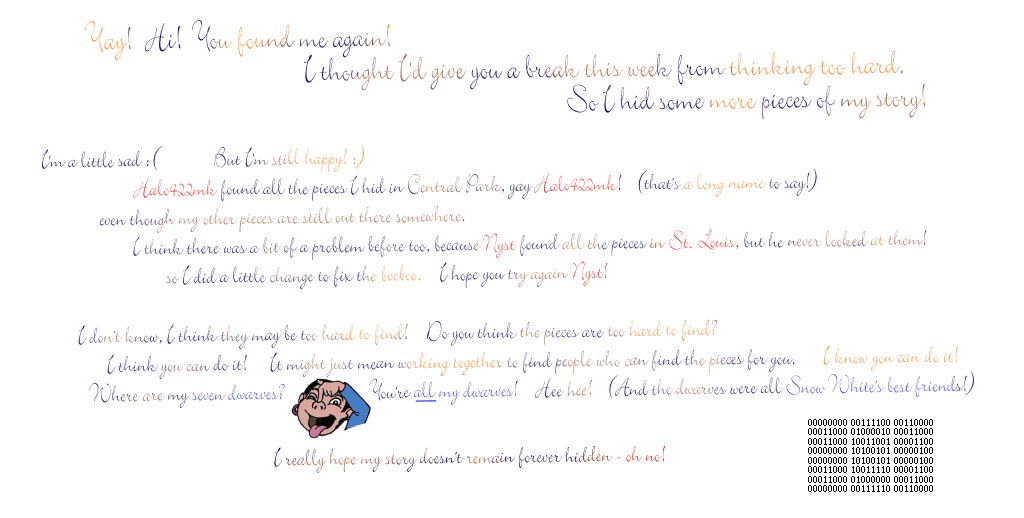 Yay! Hi! You found me again!
I thought I'd give you a break this week from thinking too hard.
So I hid some more pieces of my story!
I'm a little sad :( But I'm still happy! :)
Halo422mk found all the pieces I hid in Central Park, gay Halo422mk! (that's a long name to say!)
even though my other pieces are still out there somewhere.
I think there was a bit of a problem before too, because Nyst found all the pieces in St. Louis, but he never looked at them!
so I did a little change to fix the booboo. I hope you try again Nyst!
I don't know, I think they may be too hard to find! Do you think the pieces are too hard to find?
I think you can do it! It might just mean working together to find people who can find the pieces for you. I know you can do it!
Where are my seven dwarves? You're all my dwarves! Hee hee! (And the dwarves were all Snow White's best friends!)
00000000 00111100 00110000
00011000 01000010 00011000
00011000 10011001 00001100
00000000 10100101 00000100
00000000 10100101 00000100
00011000 10011110 00001100
00011000 01000000 00011000
00000000 00111110 00110000
I really hope my story doesn't remain forever hidden - oh no!